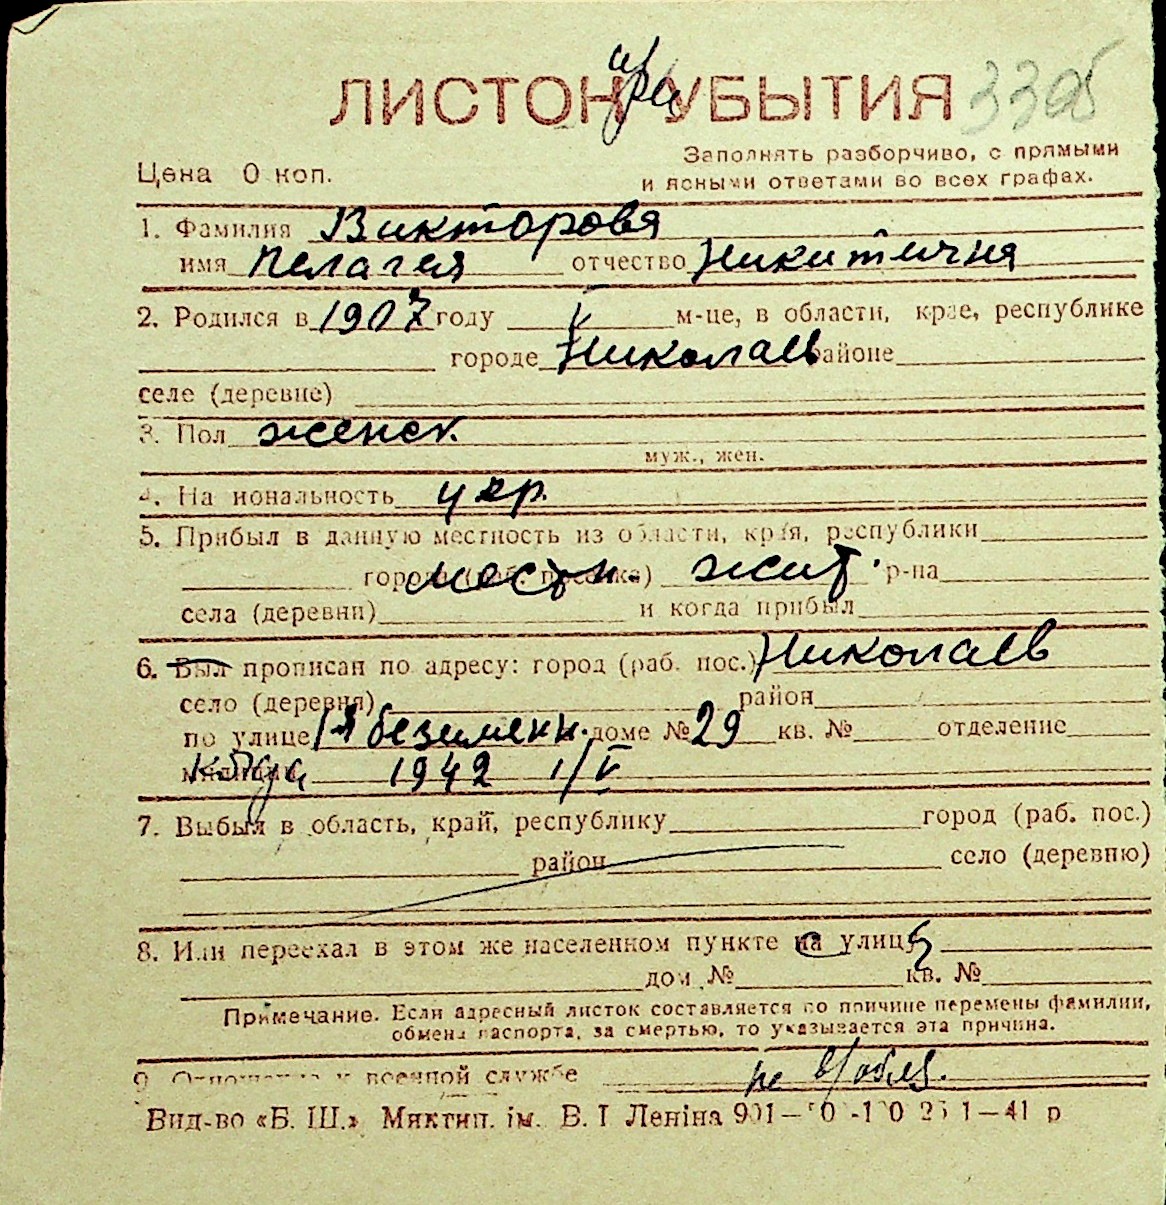 ЛИСТОК УБЫТИЯ
Цена 0 коп.
Заполнять разборчиво, с прямыми
и ясными ответами во всех графах.
1. Фамилия Викторовя
имя Пелагея отчество Никитична
2. Родился в 1907 году V м-це, в области, крае, республике
городе Николаев районе
селе (деревне)
3. Пол женск.
муж., жен.
4. На иональность укр.
5. Прибыл в данную местность из области, края, республики
города (раб. поселка) местн. жит. р-на
села (деревни) и когда прибыл
6. Был прописан по адресу: город (раб. пос.) Николаев
село (деревня) район
по улице 1я безименн. доме № 29 кв. № отделение
милиции 1942 1/V
7. Выбыл в область, край, республику город (раб. пос.)
район село (деревню)
8. Или переехал в этом же населенном пункте на улицу
дом № кв. №
Примечание. Если адресный листок составляется по причине перемены фамилии,
обмена паспорта, за смертью, то указывается эта причина.
9. Отношение к военной службе не
Вид-во «Б. Ш.» Миктип. ім. В. І Леніна 1—41 р